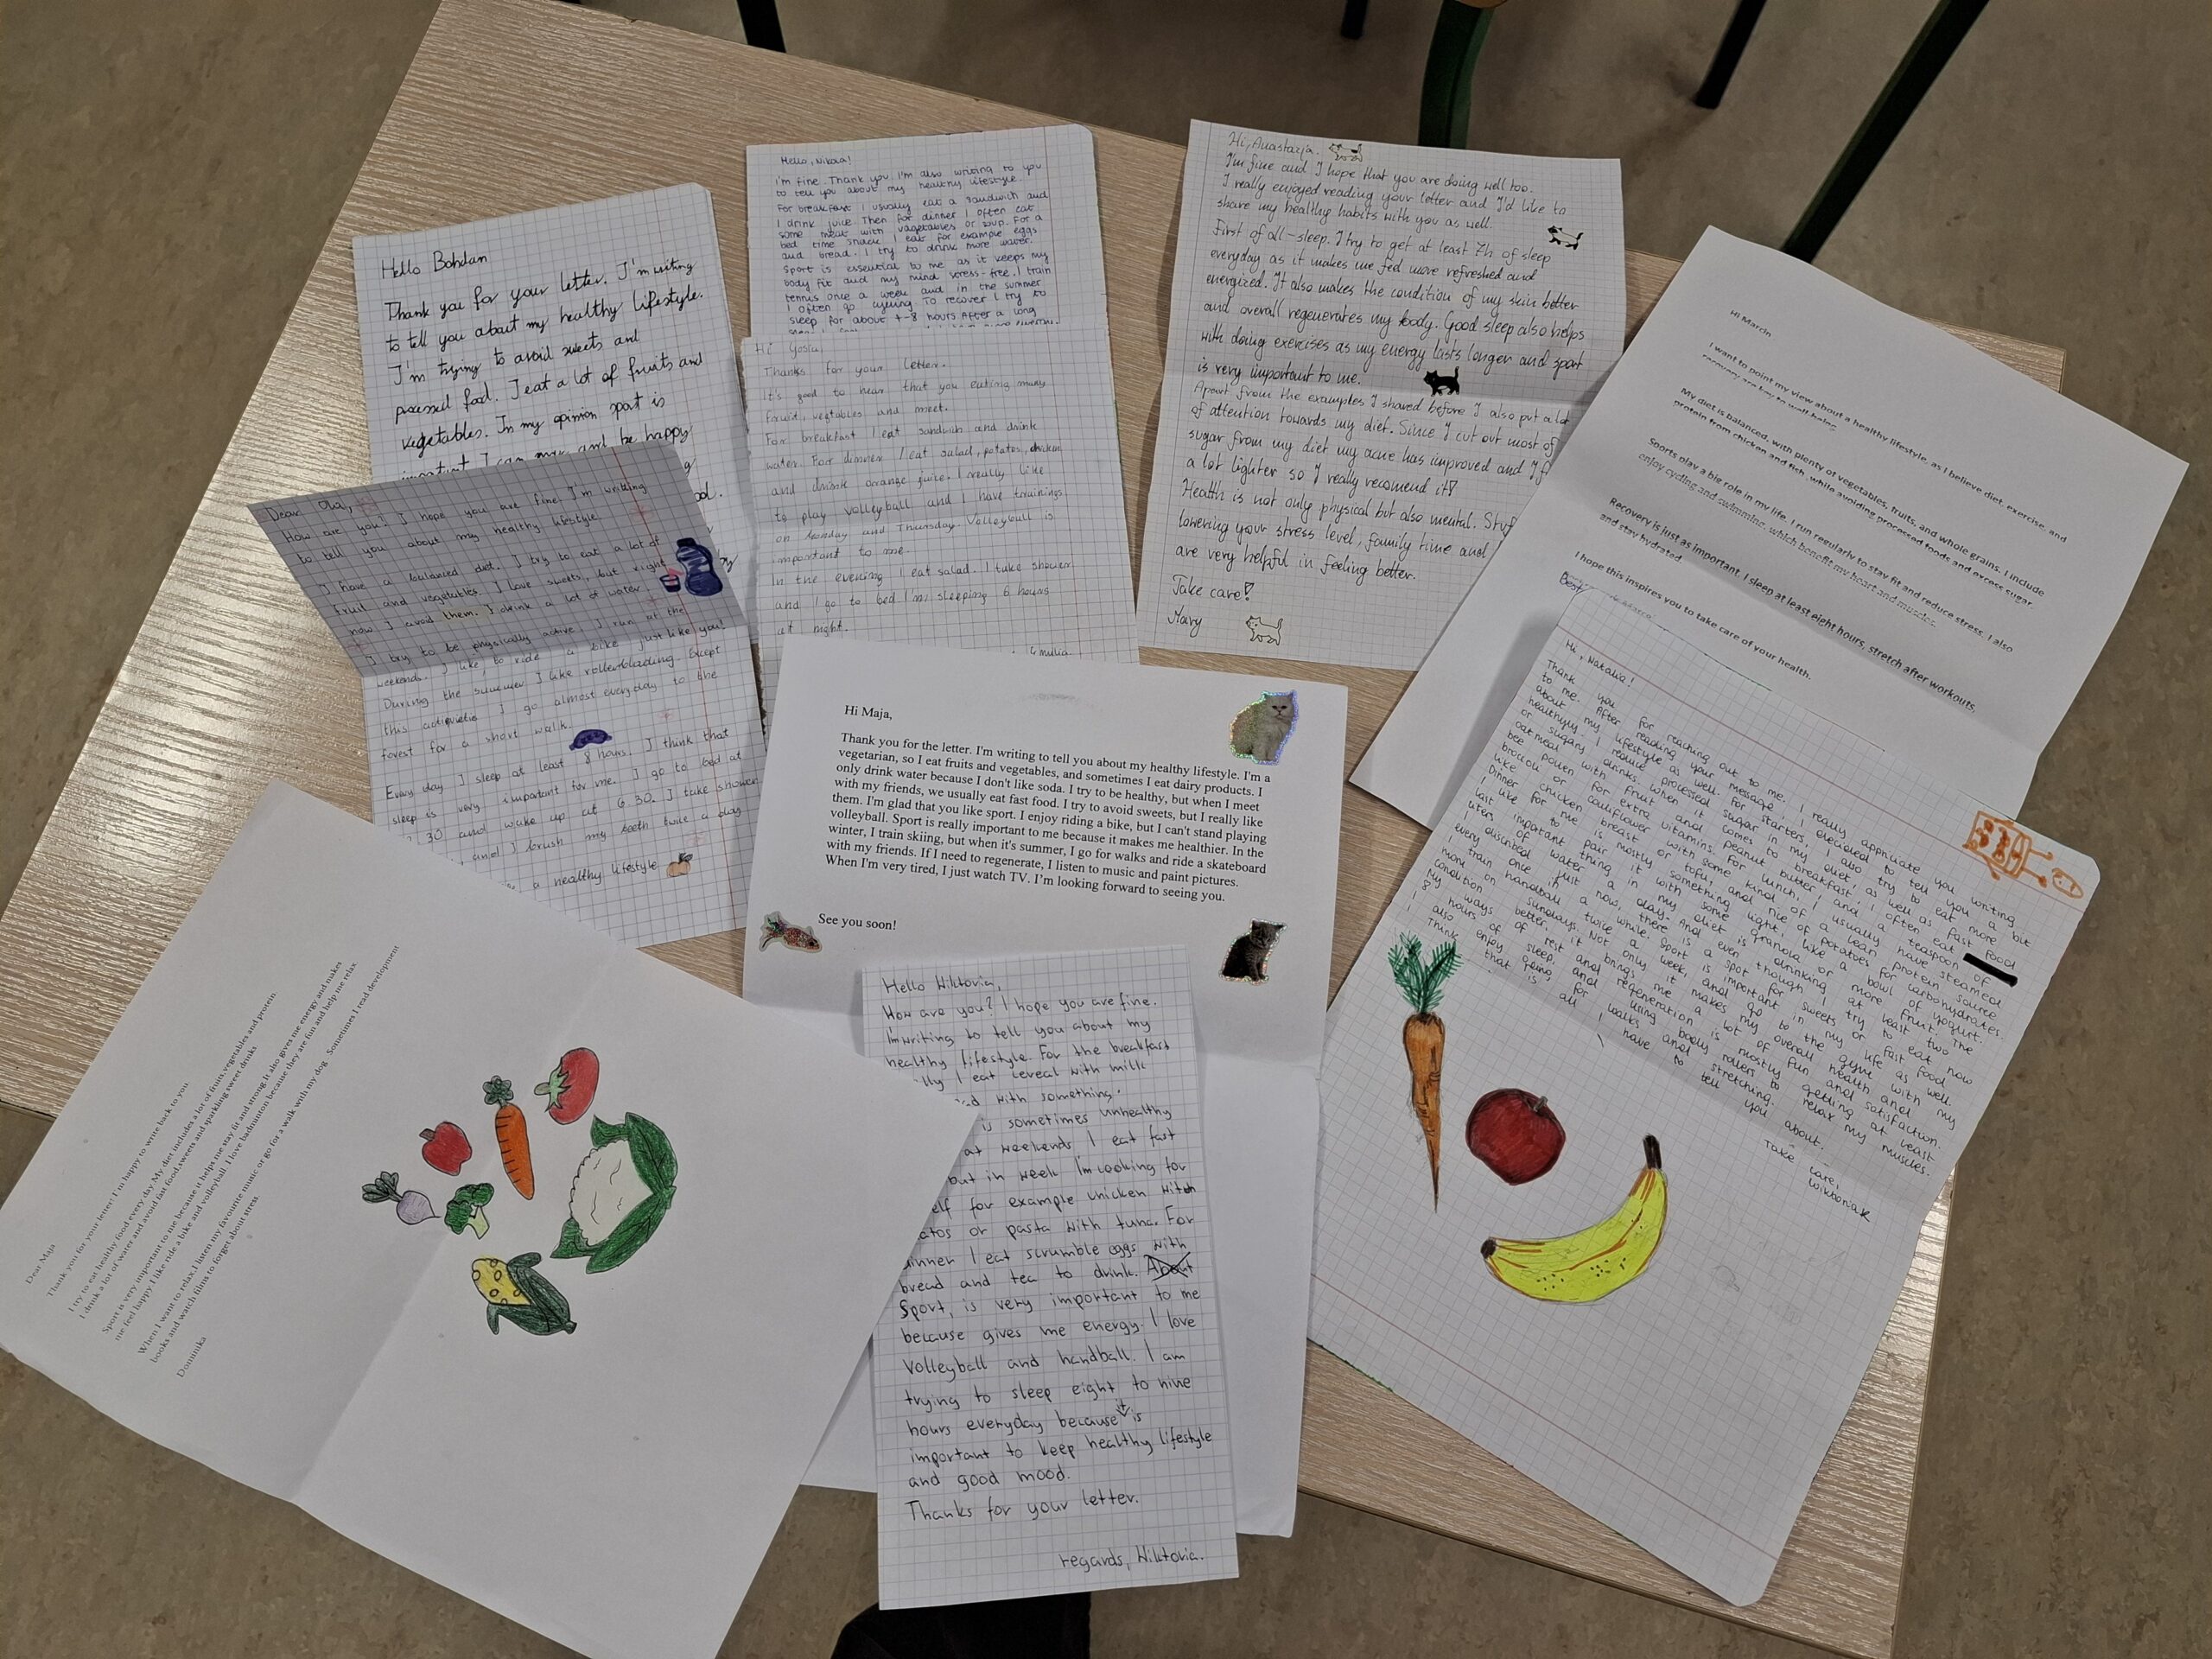 Hello Bohdan
Thank you for your letter. I'm writing
to tell you about my healthy lifestyle.
I'm trying to avoid sweets and
processed food. I eat a lot of fruits and
vegetables. In my opinion sport is
important I can and be happy
Hello, Nikola!
I'm fine. Thank you. I'm also writing to you
to tell you about my healthy lifestyle.
For breakfast I usually eat a sandwich and
I drink juice. Then for dinner I often eat
some meat with vagetables or soup. For a
bed time snack I eat for example eggs
and bread. I try to drink more water.
Sport is essential to me as it keeps my
body fit and my mind stress-free. I train
tennis once a week and in the summer
I often go cycling. To recover I try to
sleep for about 7-8 hours After a long
Hi, Anastazja.
I'm fine and I hope that you are doing well too.
I really enjoyed reading your letter and I'd like to
share my healthy habits with you as well.
First of all-sleep. I try to get at least 7h of sleep
everyday as it makes me feel more refreshed and
energized. It also makes the condition of my skin better
and overall regenerates my body. Good sleep also helps
with doing exercises as my energy lasts longer and sport
is very important to me.
Apart from the examples I shared before I also put a lot
of attention towards my diet. Since I cut out most of
sugar from my diet my acne has improved and I f
a lot lighter so I really recomend it!
Health is not only physical but also mental. Stuf
lowering your stress level, family time and
are very helpful in feeling better.
Take care!
Mary
Hi Marcin
I want to point my view about a healthy lifestyle, as I believe diet, exercise, and
recovery are key to well-being.
My diet is balanced, with plenty of vegetables, fruits, and whole grains. I include
protein from chicken and fish, while avoiding processed foods and excess sugar.
Sports play a big role in my life. I run regularly to stay fit and reduce stress. I also
enjoy cycling and swimming, which benefit my heart and muscles.
Recovery is just as important. I sleep at least eight hours, stretch after workouts,
and stay hydrated.
I hope this inspires you to take care of your health.
Hi Gosia,
Thanks for your letter.
It's good to hear that you eating many
friuid, vegetables and meet.
For breakfast I eat sandwich and drink
water. For dinner I eat salad, potatos, chicken
and drink orange juice. I really like
to play volleyball and I have trainings
on Monday and Thursday. Volleyball is
important to me.
In the evening I eat salad. I take shower
and I go to bed I'm sleeping 6 hours
at night.
Emilia
Dear Ola,
How are you? I hope you are fine. I'm writing
to tell you about my healthy lifestyle.
I have a balanced diet. I try to eat a lot of
fruit and vegetables. I love sweets, but right
now I avoid them. I drink a lot of water.
I try to be physically active I run at the
weekends. I like to ride a bike just like you!
During the summer I like rollerblading. Except
this I go almost everyday to the
forest for a short walk.
Every day I sleep at least 8 hours. I think that
sleep is very important for me. I go to bed at
30 and wake up at 6.30. I take shower
and I brush my teeth twice a day
a healthy lifestyle
Hi Maja,
Thank you for the letter. I'm writing to tell you about my healthy lifestyle. I'm a
vegetarian, so I eat fruits and vegetables, and sometimes I eat dairy products. I
only drink water because I don't like soda. I try to be healthy, but when I meet
with my friends, we usually eat fast food. I try to avoid sweets, but I really like
them. I'm glad that you like sport. I enjoy riding a bike, but I can't stand playing
volleyball. Sport is really important to me because it makes me healthier. In the
winter, I train skiing, but when it's summer, I go for walks and ride a skateboard
with my friends. If I need to regenerate, I listen to music and paint pictures.
When I'm very tired, I just watch TV. I'm looking forward to seeing you.
See you soon!
Hi, Natalia!
Thank you for reaching out to me. I really appriciate you writing
to me. After reading your message, I decided to tell you a bit
about my lifestyle as well. For starters, I also try to eat more
healthyly. I reduce processed sugar in my diet, as well as fast food
or sugary drinks. When it comes to breakfast, I often eat
oatmeal with fruit and peanut butter, and a teaspoon of
bee pollen for extra vitamins. For lunch, I usually have steamed
broccoli or cauliflower with some kind of a lean protein source
like chicken breast or tofu, and rice or potatoes for carbohydrates.
Dinner for me is mostly something light, like a bowl of yogurt.
I like to pair it with some granola or more fruit. The
last important thing in my diet is drinking at least two
liters of water a day. And even though I try to eat now
I discribed just now, there is a spot for sweets or fast food
every once in a while. Sport is important in my life as well.
I train handball twice a week, and go to the gym with my
more on sundays. Not only it makes my overall health and
condition better, it brings me a lot of fun and satisfaction.
My ways of rest and regeneration is mostly getting at least
8 hours of sleep, and using body rollers to relax my muscles.
I also enjoy going for walks and stretching.
I think that is all I have to tell you about.
Take care,
Wiktoria K
Dear Maja
Thank you for your letter! I'm happy to write back to you
I try to eat healthy food every day My diet includes a lot of fruits,vegetables and protein
I drink a lot of water and avoid fast food,sweets and sparkling sweet drinks
Sport is very important to me because it helps me stay fit and strong It also gives me energy and makes
me feel happy I like ride a bike and volleyball I love badminton because they are fun and help me relax
When I want to relax,I listen my favourite music or go for a walk with my dog Sometimes I read development
books and watch films to forget about stress
Dominika
Hello Wiktoria,
How are you? I hope you are fine.
I'm writing to tell you about my
healthy lifestyle. For the breakfast
I eat cereal with milk
with something.
is sometimes unhealthy
at weekends I eat fast
but in week I'm looking for
elf for example chicken witch
atos or pasta with tuna. For
dinner I eat scrumble eggs with
bread and tea to drink.
Sport, is very important to me
because gives me energy. I love
volleyball and handball. I am
trying to sleep eight to nine
hours everyday because it is
important to keep healthy lifestyle
and good mood.
Thanks for your letter.
regards, Wiktoria.